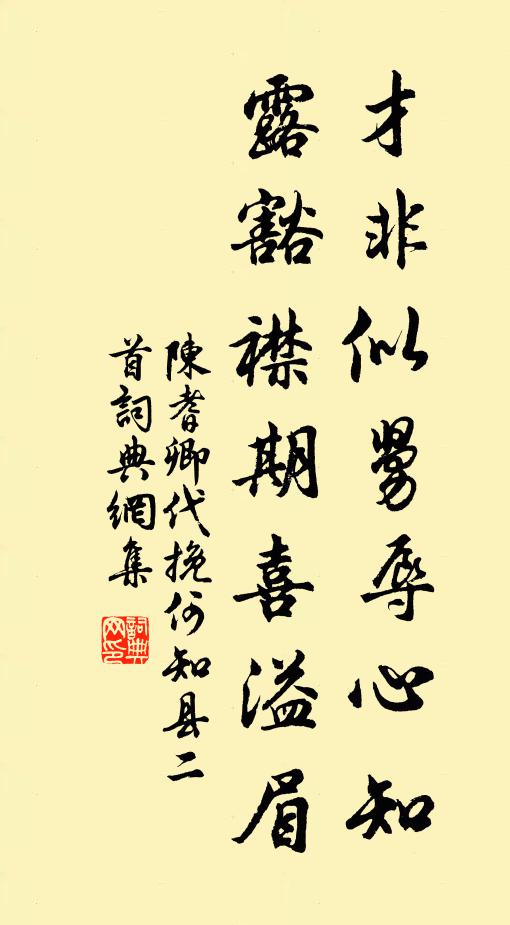 才非似舅辱心知
露豁襟期喜溢眉
陳耆卿代挽何知县二
首詞典網集
詞典網印